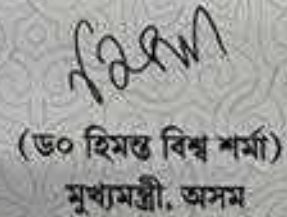 (ড০ হিমন্ত বিশ্ব শৰ্মা)
মুখ্যমন্ত্ৰী. অসম